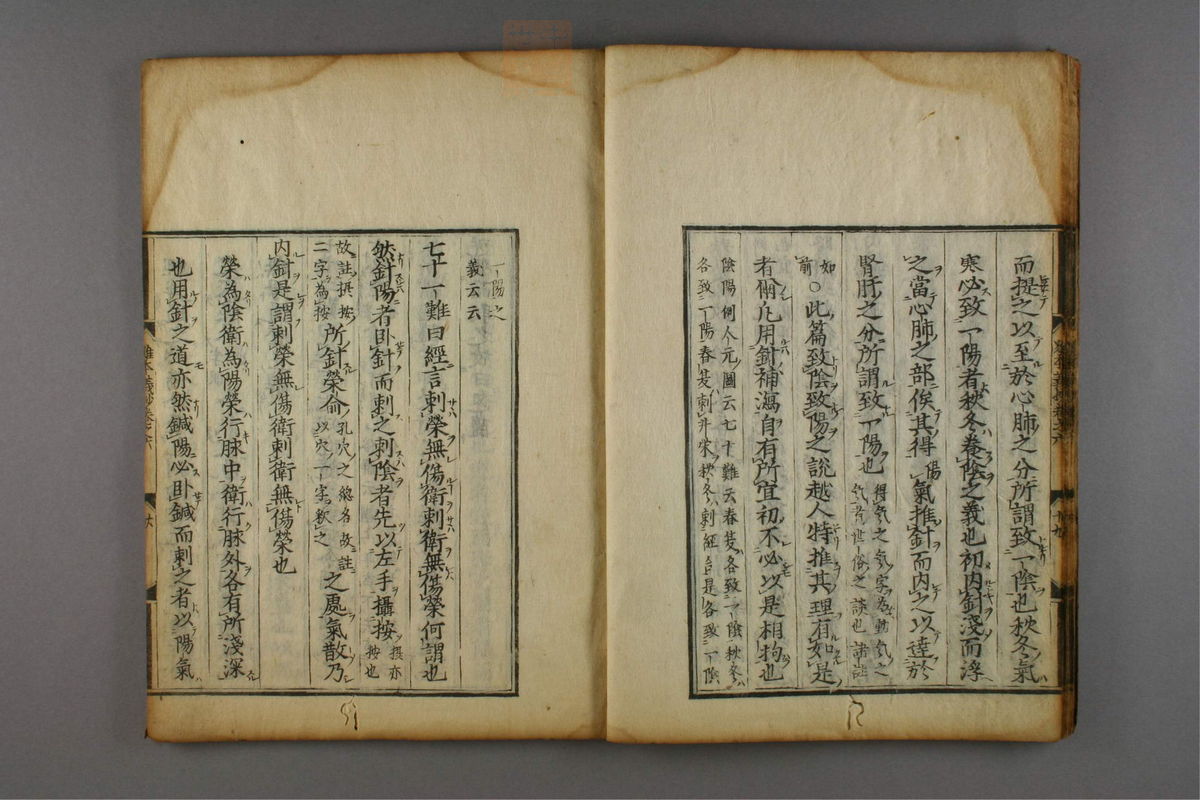 而提之以至於心肺之分所謂致一陰也秋冬氣
寒必致一陽者秋冬養陰之義也初内針淺而浮
之當心肺之部俟其得陽氣推針而内之以達於
腎肝之分所謂致一陽也
得氣之氣字為動氣之
氣者世俗之談也諸註
如
前
○此篇致陰致陽之說越人特推其理有如是
者爾凡用針補瀉自有所宜初不必以是相拘也
陰陽例今元圖云七十難云春夏各致一陰秋冬
各致一陽春夏刺井榮秋冬刺經合是各致一陰
一陽之
義云云
七十一難曰經言刺榮無傷衛刺衛無傷榮何謂也
然針陽者臥針而刺之刺陰者先以左手攝按
撰亦
按也
故註撰按
二字為按
所針榮俞
孔穴之總名故註
以穴一字釈之
之處氣散乃
内針是謂刺榮無傷衛刺衛無傷榮也
榮為陰衛為陽榮行脉中衛行脉外各有所淺深
也用針之道亦然鍼陽必臥鍼而刺之者以陽氣